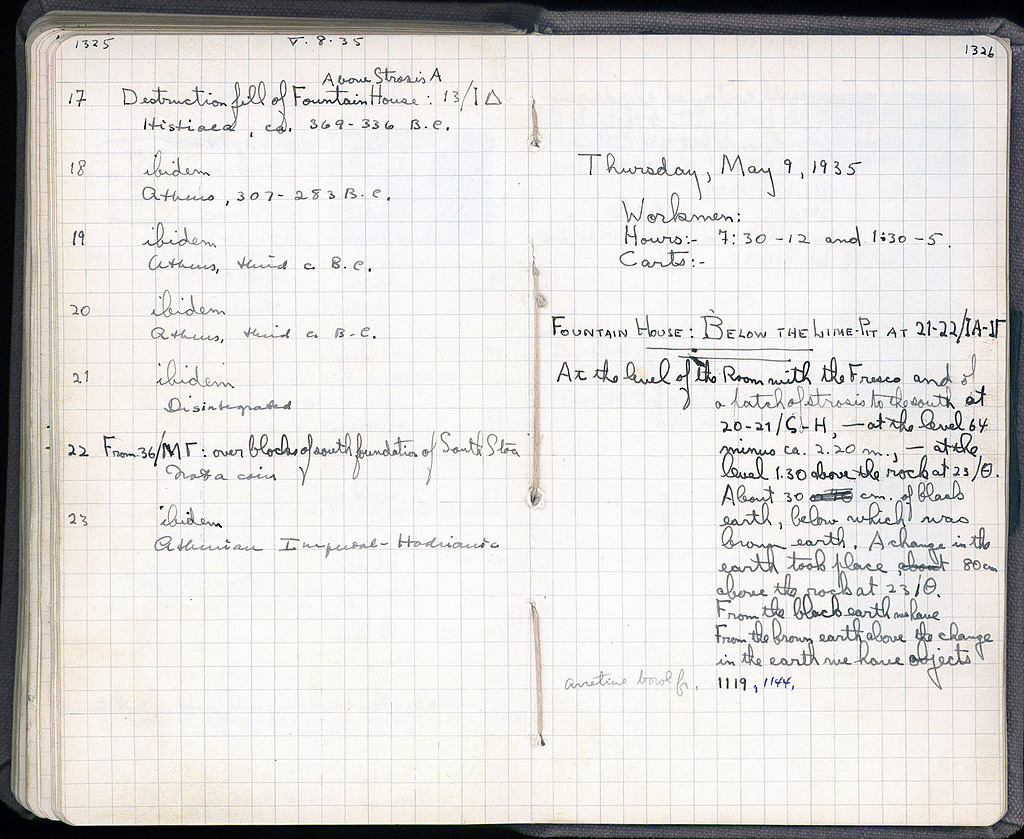 1325
V. 8. 35
Above Strosis A
17 Destruction fill of Fountain House: 13/ΙΔ
Histiaea, ca. 369-336 B.C.
18 ibidem
Athens, 307-283 B.C.
19 ibidem
Athens, third c. B.C.
20 ibidem
Athens, third c. B.C.
21 ibidem
Disintegrated
22 From 36/ΜΓ: over blocks of south foundation of South Stoa
Not a coin
23 ibidem
Athenian Imperial - Hadrianic
1326
Thursday, May 9, 1935
Workmen:
Hours:- 7:30-12 and 1:30-5.
Carts:-
FOUNTAIN HOUSE: BELOW THE LIME-PIT AT 21-22/ΙΑ-ΙΓ
At the level of the Room with the Fresco and of
a patch of strosis to the south at
20-21/ -H, — at the level 64
minus ca. 2.20 m., — at the
level 1.30 above the rock at 23/Θ.
About 30 cm. of black
earth, below which was
brown earth. A change in the
earth took place about 80 cm
above the rock at 23/Θ.
From the black earth we have
From the brown earth above the change
in the earth we have objects
arretine bowl fr. 1119, 1144,